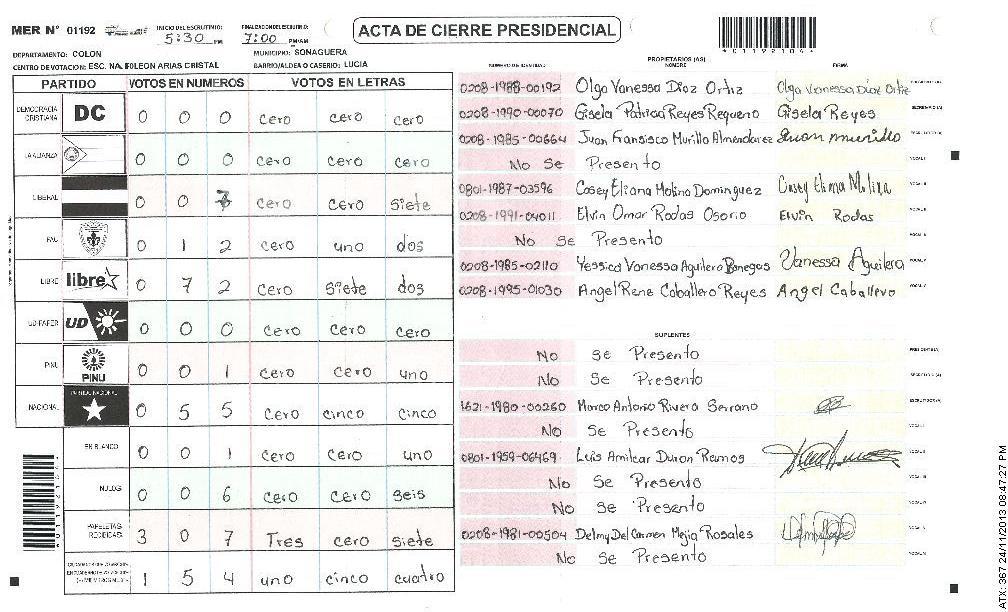 MER N° 01192
INICIO DEL ESCRUTINIO: 5:30 PM
FINALIZACION DEL ESCRUTINIO: 7:00 PM/AM
ACTA DE CIERRE PRESIDENCIAL
*01192104*
DEPARTAMENTO: COLON
MUNICIPIO: SONAGUERA
CENTRO DE VOTACION: ESC. NA. POLEON ARIAS CRISTAL
BARRIO/ALDEA O CASERIO: LUCIA
PARTIDO VOTOS EN NUMEROS VOTOS EN LETRAS
DEMOCRACIA CRISTIANA DC 0 0 0 cero cero cero
LA ALIANZA 0 0 0 cero cero cero
LIBERAL 0 0 7 cero cero siete
PAC 0 1 2 cero uno dos
LIBRE libre 0 7 2 cero siete dos
UD-FAPER UD 0 0 0 cero cero cero
PINU PINU 0 0 1 cero cero uno
NACIONAL PARTIDO NACIONAL 0 5 5 cero cinco cinco
EN BLANCO 0 0 1 cero cero uno
NULOS 0 0 6 cero cero seis
PAPELETAS RECIBIDAS 3 0 7 Tres cero siete
1 5 4 uno cinco cuatro
PROPIETARIOS (AS)
NUMERO DE IDENTIDAD NOMBRE FIRMA
0208-1988-00192 Olga Vanessa Díaz Ortiz Olga Vanessa Díaz Ortiz
0208-1990-00070 Gisela Patrica Reyes Requeno Gisela Reyes SECRETARIO (A)
0208-1985-00664 Juan Fransisco Murillo Almendarez Juan murillo
No Se Presento
0801-1987-03596 Cosey Eliana Molina Dominguez Cosey Eliana Molina
0208-1991-04011 Elvin Omar Rodas Osorio Elvin Rodas
No Se Presento
0208-1985-02110 Yessica Vanessa Aguilera Banegas Vanessa Aguilera
0208-1995-01030 Angel Rene Caballero Reyes Angel Caballero
SUPLENTES
No Se Presento PRESIDENTE (A)
No Se Presento SECRETARIO (A)
1621-1980-00260 Marco Antonio Rivera Serrano ESCRUTADOR (A)
No Se Presento
0801-1959-06469 Luis Amilcar Duron Ramos
No Se Presento
No Se Presento
0208-1981-00504 Delmy Del Carmen Mejia Rosales
No Se Presento
ATX: 367 24/11/2013 08:47:27 PM